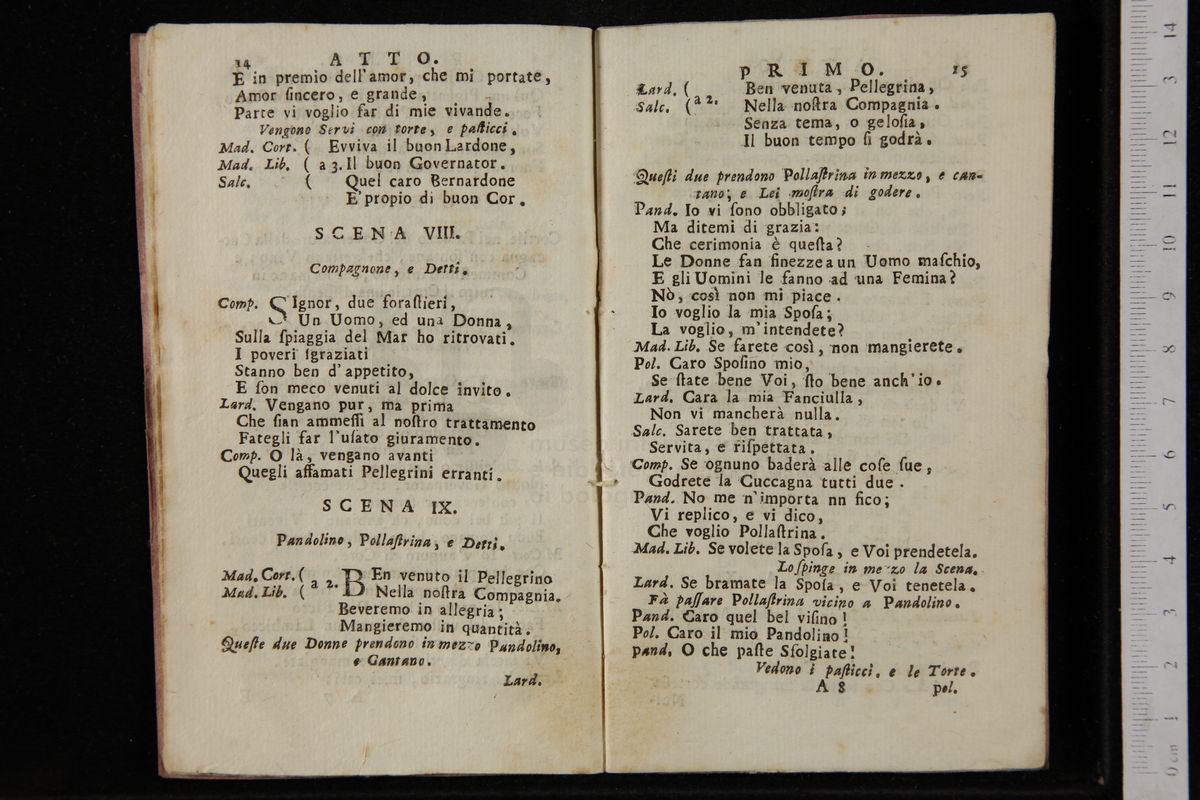 14 ATTO.
E in premio dell'amor, che mi portate,
Amor ſincero, e grande,
Parte vi voglio far di mie vivande.
Vengono Servi con torte, e paſticci.
Mad. Cort. ( Evviva il buon Lardone,
Mad. Lib. ( a 3. Il buon Governator.
Salc. ( Quel caro Bernardone
E' propio di buon Cor.
SCENA VIII.
Compagnone, e Detti.
Comp. SIgnor, due foraſtieri,
Un Uomo, ed una Donna,
Sulla ſpiaggia del Mar ho ritrovati.
I poveri ſgraziati
Stanno ben d'appetito,
E ſon meco venuti al dolce invito.
Lard. Vengano pur, ma prima
Che ſian ammeſſi al noſtro trattamento
Fategli far l'uſato giuramento.
Comp. O là, vengano avanti
Quegli affamati Pellegrini erranti.
SCENA IX.
Pandolino, Pollaſtrina, e Detti.
Mad. Cort. ( a 2. BEn venuto il Pellegrino
Mad. Lib. ( Nella noſtra Compagnia.
Beveremo in allegria;
Mangieremo in quantità.
Queſte due Donne prendono in mezzo Pandolino,
e Cantano.
Lard.
PRIMO. 15
Lard. ( a 2. Ben venuta, Pellegrina,
Salc. ( Nella noſtra Compagnia.
Senza tema, o geloſia,
Il buon tempo ſi godrà.
Queſti due prendono Pollaſtrina in mezzo, e can-
tano; e Lei moſtra di godere.
Pand. Io vi ſono obbligato;
Ma ditemi di grazia:
Che cerimonia è queſta?
Le Donne fan finezze a un Uomo maſchio,
E gli Uomini le fanno ad una Femina?
Nò, così non mi piace.
Io voglio la mia Spoſa;
La voglio, m'intendete?
Mad. Lib. Se farete così, non mangierete.
Pol. Caro Spoſino mio,
Se ſtate bene Voi, ſto bene anch'io.
Lard. Cara la mia Fanciulla,
Non vi mancherà nulla.
Salc. Sarete ben trattata,
Servita, e riſpettata.
Comp. Se ognuno baderà alle coſe ſue,
Godrete la Cuccagna tutti due.
Pand. No me n'importa nn fico;
Vi replico, e vi dico,
Che voglio Pollaſtrina.
Mad. Lib. Se volete la Spoſa, e Voi prendetela.
Lo ſpinge in mezzo la Scena.
Lard. Se bramate la Spoſa, e Voi tenetela.
Fà paſſare Pollaſtrina vicino a Pandolino.
Pand. Caro quel bel viſino!
Pol. Caro il mio Pandolino!
Pand. O che paſte Sfolgiate!
Vedono i paſticci, e le Torte.
A 8 Pol.
0 cm 1 2 3 4 5 6 7 8 9 10 11 12 3 14